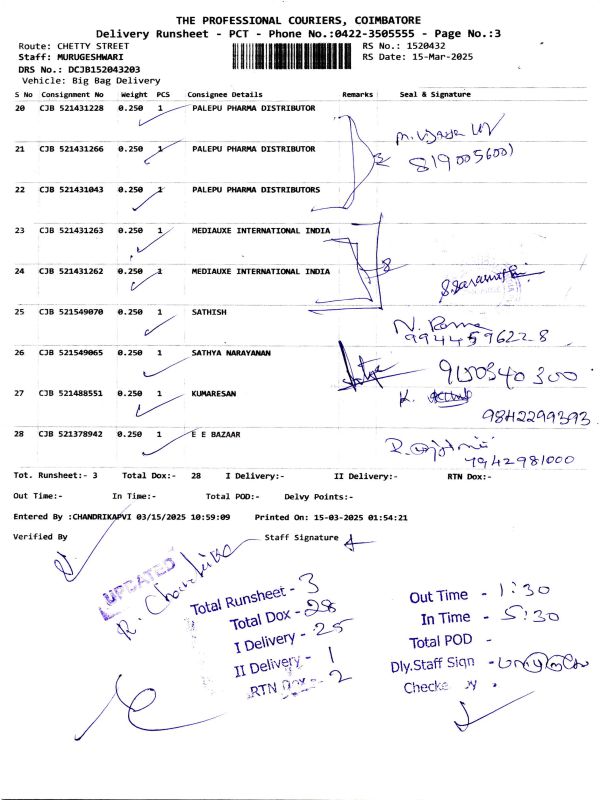 THE PROFESSIONAL COURIERS, COIMBATORE
Delivery Runsheet - PCT - Phone No.:0422-3505555 - Page No.:3
Route: CHETTY STREET RS No.: 1520432
Staff: MURUGESHWARI RS Date: 15-Mar-2025
DRS No.: DCJB152043203
Vehicle: Big Bag Delivery
S No Consignment No Weight PCS Consignee Details Remarks Seal & Signature
20 CJB 521431228 0.250 1 PALEPU PHARMA DISTRIBUTOR
21 CJB 521431266 0.250 1 PALEPU PHARMA DISTRIBUTOR
8190056001
22 CJB 521431043 0.250 1 PALEPU PHARMA DISTRIBUTORS
23 CJB 521431263 0.250 1 MEDIAUXE INTERNATIONAL INDIA
24 CJB 521431262 0.250 1 MEDIAUXE INTERNATIONAL INDIA
25 CJB 521549070 0.250 1 SATHISH
9944596228
26 CJB 521549065 0.250 1 SATHYA NARAYANAN
9150340300
27 CJB 521488551 0.250 1 KUMARESAN K.
9842299393
28 CJB 521378942 0.250 1 E E BAZAAR
7942981000
Tot. Runsheet:- 3 Total Dox:- 28 I Delivery:- II Delivery:- RTN Dox:-
Out Time:- In Time:- Total POD:- Delvy Points:-
Entered By :CHANDRIKAPVI 03/15/2025 10:59:09 Printed On: 15-03-2025 01:54:21
Verified By Staff Signature
UPDATED
R. Chandrika
Total Runsheet - 3
Total Dox - 28
I Delivery - 25
II Delivery - 1
RTN Dox - 2
Out Time - 1:30
In Time - 5:30
Total POD -
Dly.Staff Sign -